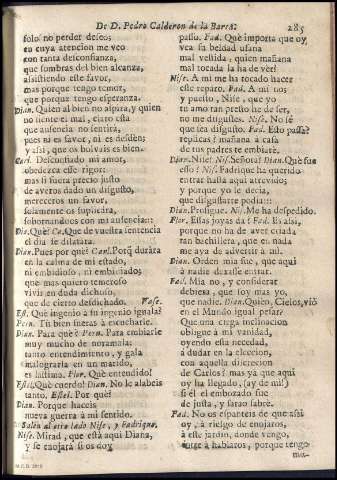 De D. Pedro Calderon de la Barca.
285
solo no perder deseos,
en cuya atencion me veo
con tanta desconfianza,
que sombras del bien alcanza,
assistiendo este favor,
mas porque tengo temor,
que porque tengo esperanza.
Dian. Quien al bien no aspira, y quien
no siente el mal, claro està
que ausencia no sentira,
pues ni es favor, ni es desden;
y assi, que os bolvais es bien.
Carl. Desconfiado mi amor,
obedezca esse rigor:
mas si fuera precio justo
de averos dado un disgusto,
mereceros un favor,
solamente os supiera,
sobornandoos con mi ausencia:::
Dia. Què? Ca. Que de vuestra sentencia
el dia se dilatara.
Dian. Pues por què? Carl. Porq̃ duràra
en la calma de mi estado,
ni embidioso, ni embidiado;
que mas quiero temeroso
vivir en duda dichoso,
que de cierto desdichado. Vase.
Est. Què ingenio à su ingenio iguala?
Pern. Tù bien fueras à escucharle.
Dian. Para què? Pern. Para embiarle
muy mucho de noramala:
tanto entendimiento, y gala
malograrla en un marido,
es lastima. Flor. Què entendido!
Estel. Què cuerdo! Dian. No le alabeis
tanto, Estel. Por què!
Dian. Porque haceis
nueva guerra à mi sentido.
Salen al otro lado Nise, y Fadrique.
Nise. Mirad, que està aqui Diana,
y se enojarà si os doy
passo. Fad. Què importa que oy
vea su beldad ufana
mal vestida, quien mañana
mal tocada la ha de vèr?
Nise. A mi me ha tocado hacer
este reparo. Fad. A mi nos
y puesto, Nise, que yo
tu amo tan presto he de ser,
no me disgustes. Nise. No sè
que sea disgusto. Fad. Esto passa?
replicas? mañana à casa
de tus padres te embiarè.
Dian. Nise! Nis. Señora? Dian. Què fue
esso? Nis. Fadrique ha querido
entrar hasta aqui atrevido;
y porque yo le decia,
que disgustarte podia:::
Dian. Prosigue. Nis. Me ha despedido.
Flor. Essas joyas dà? Fad. Es assi,
porque no ha de aver criada
tan bachillera, que en nada
me aya de advertir à mi.
Dian. Orden mia fue, que aqui
à nadie dexasse entrar.
Fad. Mia no, y considerar
debiera, que soy mas yo,
que nadie. Dian. Quien, Cielos, viò
en el Mundo igual pesar?
Que una ciega inclinacion
obligue à mi vanidad,
oyendo esta necedad,
à dudar en la eleccion,
con aquella discrecion
de Carlos? mas ya que aqui
oy ha llegado, (ay de mi!)
si èl el embozado fue
de justa, y sarao sabrè.
Fad. No os espanteis de que assi
oy, à riesgo de enojaros,
à este jardin, donde vengo,
entre à hablaros, porque tengo